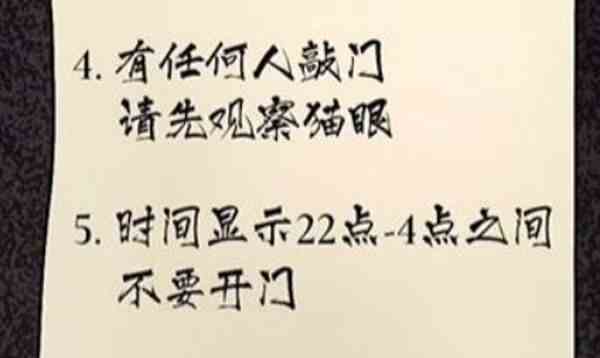 4. 有任何人敲门
请先观察猫眼
5. 时间显示22点-4点之间
不要开门